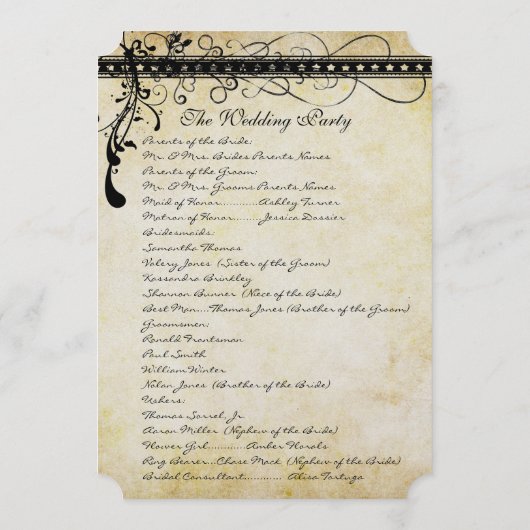 The Wedding Party
Parents of the Bride:
Mr. & Mrs. Brides Parents Names
Parents of the Groom:
Mr. & Mrs. Grooms Parents Names
Maid of Honor............Ashley Turner
Matron of Honor..........Jessica Dossier
Bridesmaids:
Samantha Thomas
Valery Jones (Sister of the Groom)
Kassandra Brinkley
Shannon Bunner (Niece of the Bride)
Best Man....Thomas Jones (Brother of the Groom)
Groomsmen:
Ronald Frantsman
Paul Smith
William Winter
Nolan Jones (Brother of the Bride)
Ushers:
Thomas Sorrel, Jr.
Aaron Miller (Nephew of the Bride)
Flower Girl............Amber Florals
Ring Bearer....Chase Mack (Nephew of the Bride)
Bridal Consultant............ Alisa Tortuga